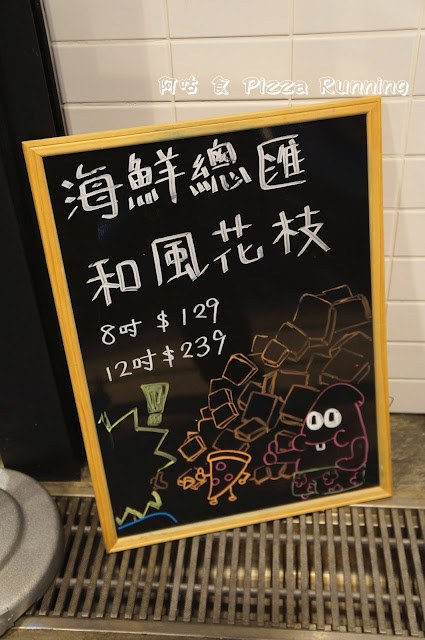 阿咕 食 Pizza Running
海鮮總匯
和風花枝
8吋 $129
12吋 $239